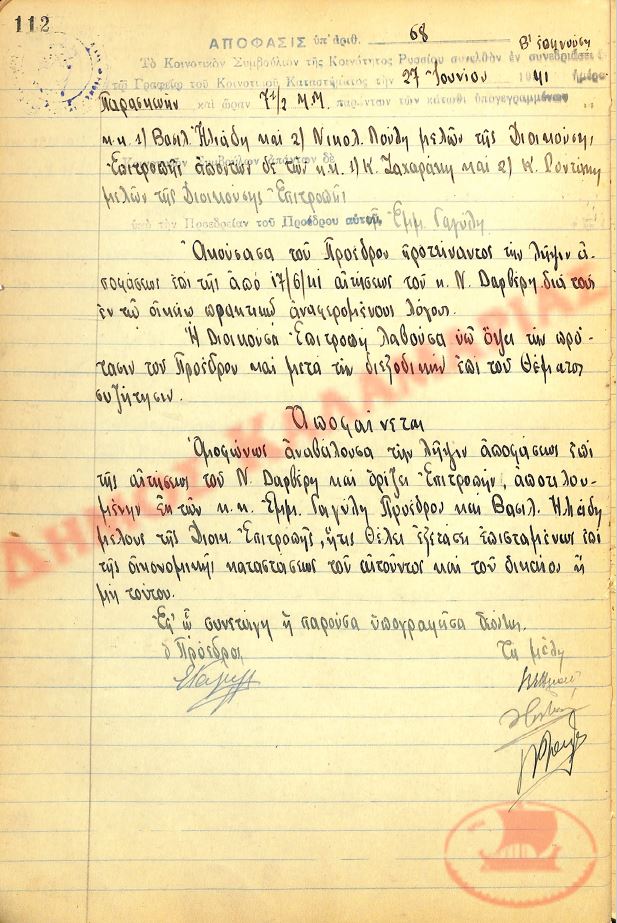 112
ΑΠΟΦΑΣΙΣ ὑπ' ἀριθ. 68
Τὸ Κοινοτικὸν Συμβούλιον τῆς Κοινότητος Ρυσσίου συνελθὸν ἐν συνεδριάσει
τῷ Γραφείῳ τοῦ Κοινοτικοῦ Καταστήματος τὴν 27 Ἰουνίου 1941 ἡμέρᾳ
Παρασκευὴν καὶ ὥραν 7 1/2 μ.μ. παρόντων τῶν κάτωθι ὑπογεγραμμένων
κ.κ. 1) Βασιλ. Ἠλιάδη καὶ 2) Νικολ. Πούλη μελῶν τῆς Διοικούσης
Ἐπιτροπῆς ἀπόντος δὲ τῶν κ.κ. 1) Κ. Ζαχαράκη καὶ 2) Κ.
μελῶν τῆς Διοικούσης Ἐπιτροπῆς
ὑπὸ τὴν Προεδρείαν τοῦ Προέδρου αὐτοῦ, Ἐμμ. Γαγύλη
Ἀκούσασα τοῦ Προέδρου προτείναντος τὴν λῆψιν ἀ-
ποφάσεως ἐπὶ τῆς ἀπὸ 17/6/41 αἰτήσεως τοῦ κ. Ν. Δαρβέρη διὰ τοὺς
ἐν τῷ πρακτικῷ ἀναφερομένους λόγους.
Ἡ Διοικοῦσα Ἐπιτροπὴ λαβοῦσα ὑπ' ὄψει τὴν πρό-
τασιν τοῦ Προέδρου καὶ μετὰ τὴν διεξοδικὴν ἐπὶ τοῦ θέματος
συζήτησιν.
Ἀποφαίνεται
Ὁμοφώνως ἀναβάλουσα τὴν λῆψιν ἀποφάσεως ἐπὶ
τῆς αἰτήσεως τοῦ Ν. Δαρβέρη καὶ ὁρίζει Ἐπιτροπήν, ἀποτελου-
μένην ἐκ τῶν κ.κ. Ἐμμ. Γαγύλη Προέδρου καὶ Βασιλ. Ἠλιάδη
μέλους τῆς Διοικ. Ἐπιτροπῆς, ἥτις θέλει ἐξετάση ἐπισταμένως ἐπὶ
τῆς οἰκονομικῆς καταστάσεως τοῦ αἰτοῦντος καὶ τοῦ δικαίου ἢ
μὴ τούτου.
Ἐφ' ᾧ συνετάγη ἡ παροῦσα ὑπογραφῆσα
ὁ Πρόεδρος Τὰ μέλη
ΔΗΜΟΣ ΚΑΛΑΜΑΡΙΑΣ